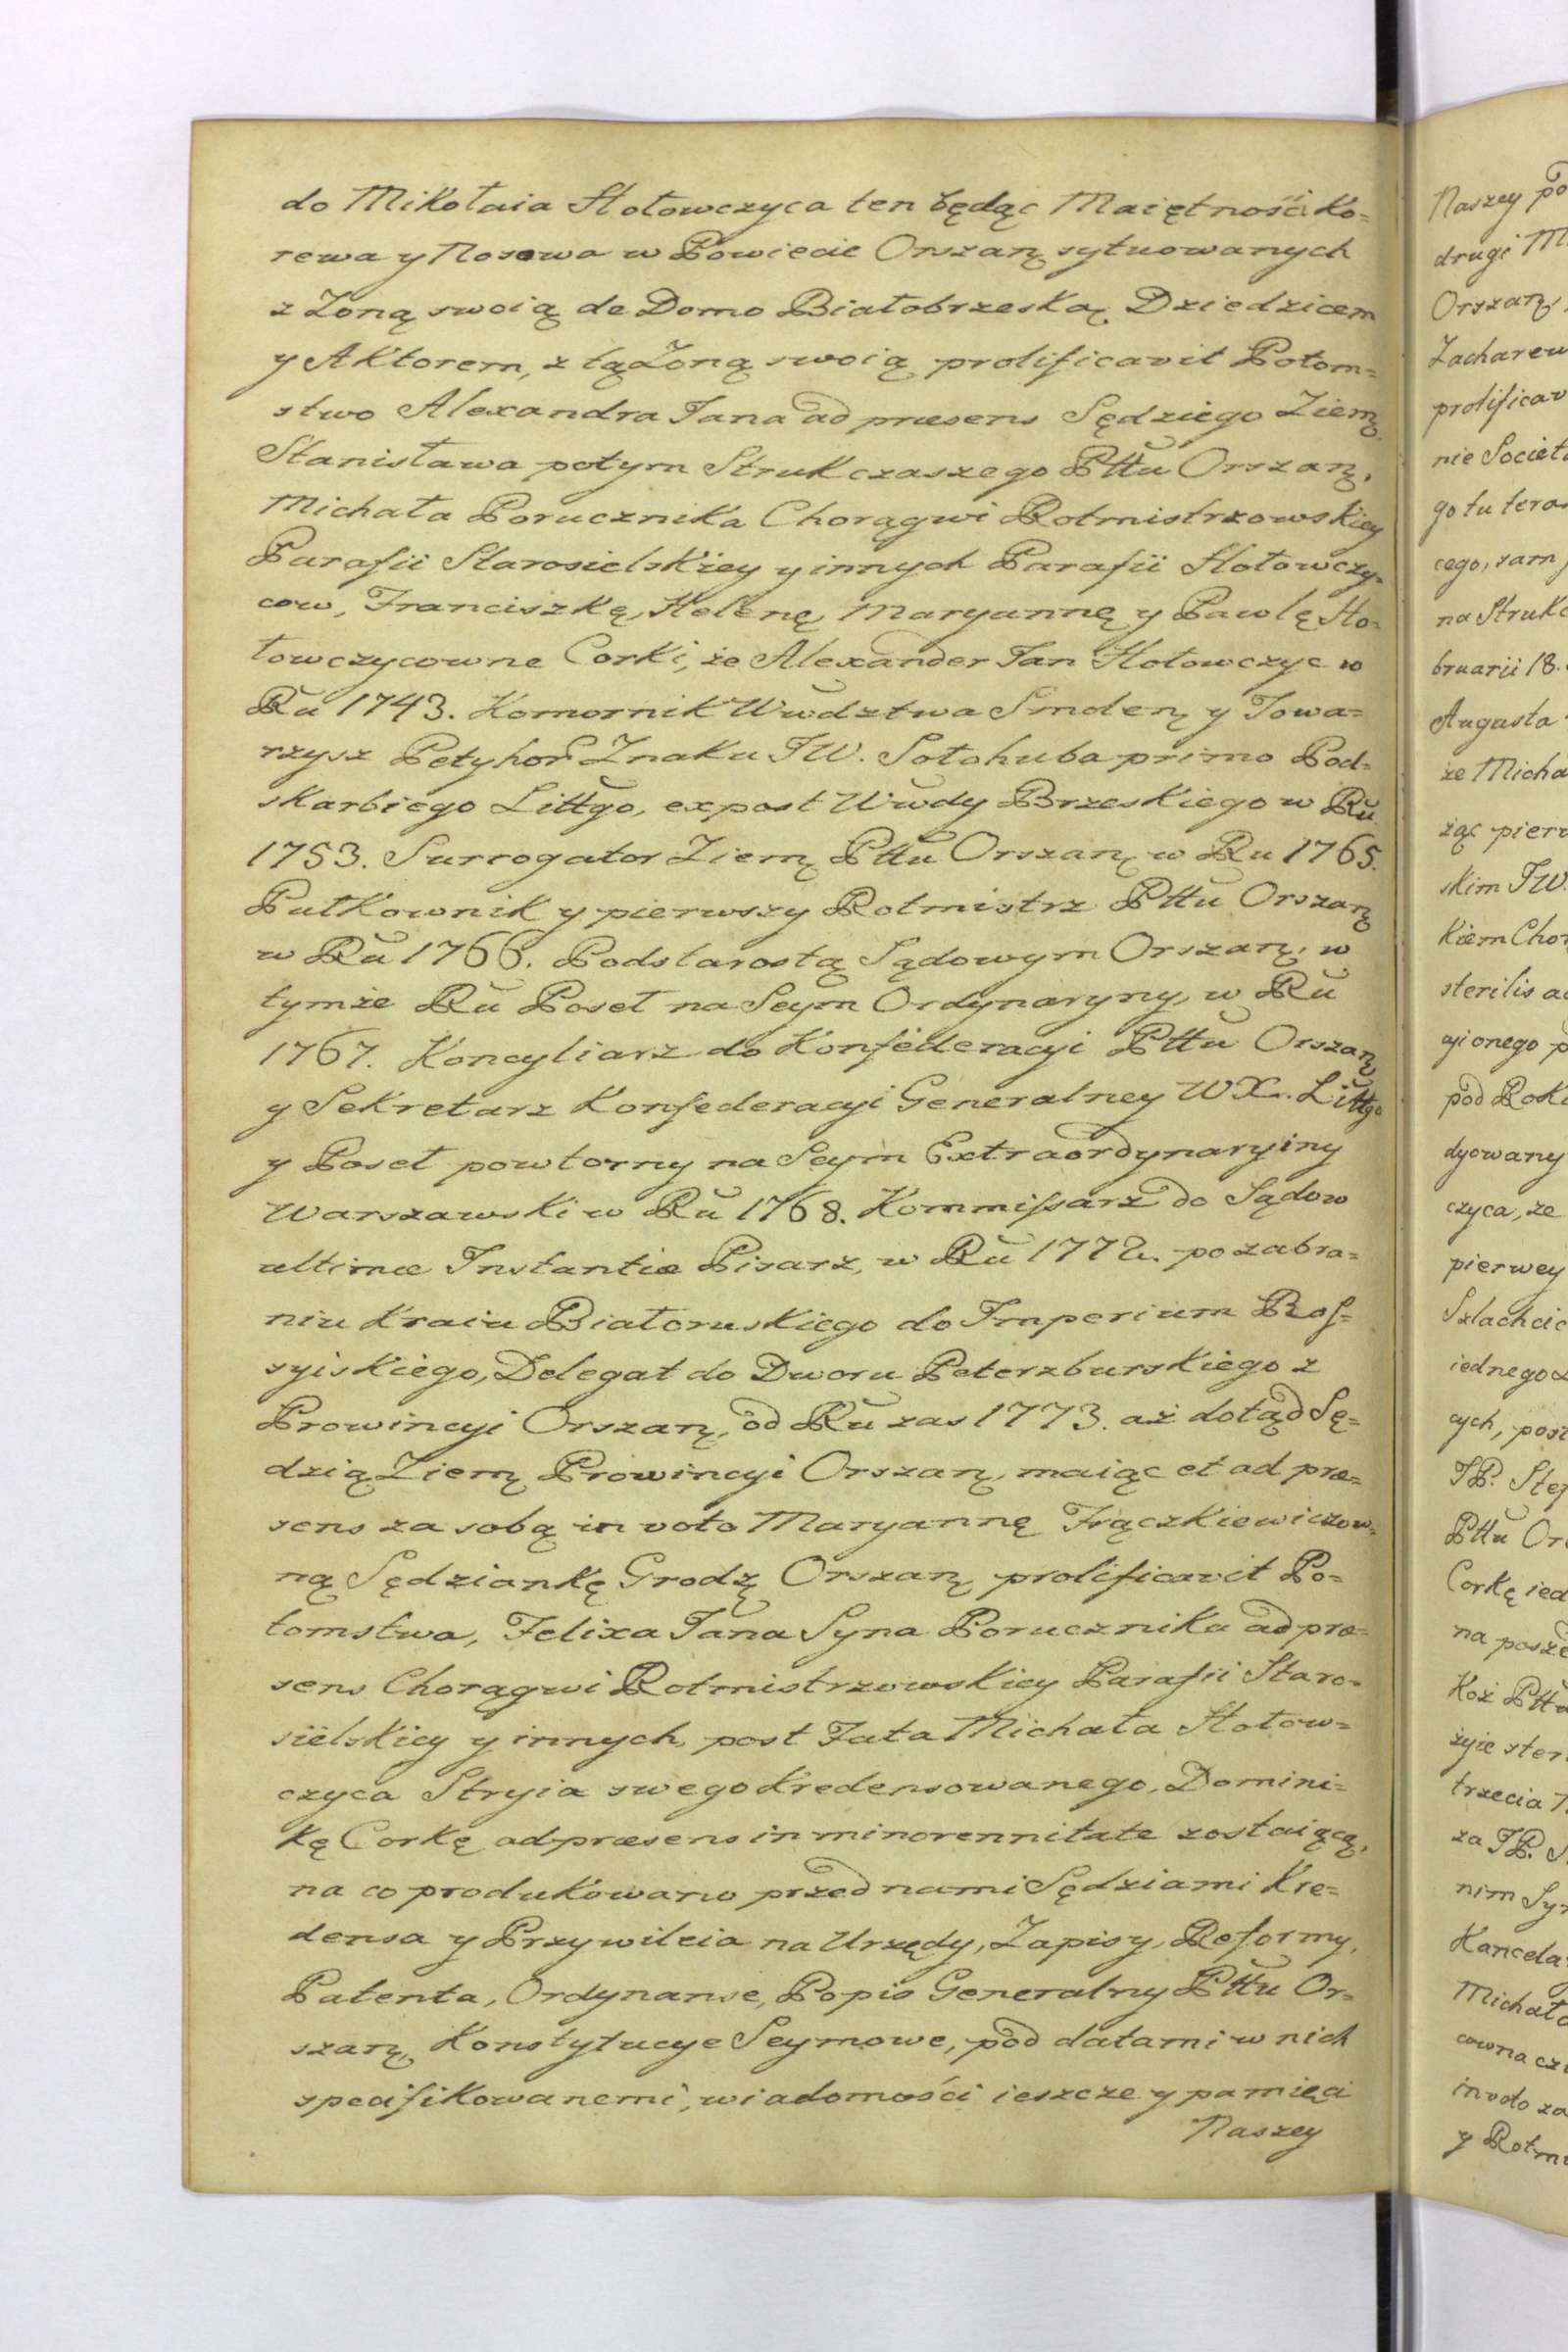 do Mikołaia Hołowczyca ten będąc Maiętności Ko=
rewa y Nosowa w Powiecie Orszaṇ sytuowanych
z Zoną swoią de Domo Białobrzeską Dziedzicem
y Aktorem, z tą Zoną swoią prolificavit Potom=
stwo Alexandra Jana ad præsens Sędziego Ziem̨
Stanisława potym Strukczaszego Pttu Orszaṇ,
Michała Porucznika Chorągwi Rotmistrzowskiey
Parafii Starosielskiey y innych Parafii Hołowczy=
cow, Franciszkę, Helenę, Maryannę y Pawlę Ho=
łowczycowne Corki, że Alexander Jan Hołowczyc w
Ru 1743. Komornik Wwdztwa Smoleṇ y Towa=
rzysz Petyhor Znaku JW. Sołohuba primo Pod=
skarbiego Littgo, expost Wwdy Brzeskiego w Ru
1753. Surrogator Ziem̨ Pttu Orszaṇ, w Ru 1765.
Pułkownik y pierwszy Rotmistrz Pttu Orszaṇ
w Ru 1766. Podstarostą Sądowym Orszaṇ, w
tymże Ru Poseł na Seym Ordynaryny, w Ru
1767. Koncyliarz do Konfederacyi Pttu Orszaṇ
y Sekretarz Konfederacyi Generalney WX. Littgo
y Poseł powtorny na Seym Extraordynaryiny
Warszawski w Ru 1768. Kommissarz do Sądow
ultimæ Instantiæ Pisarz, w Ru 1772. po zabra=
niu Kraiu Białoruskiego do Imperium Ros=
syiskiego, Delegat do Dworu Peterzburskiego z
Prowincyi Orszaṇ, od Ru zas 1773. aż dotąd Sę=
dzią Ziem̨ Prowincyi Orszaṇ, maiąc et ad præ=
sens za sobą in voto Maryannę Frączkiewiczow=
ną Sędziankę Grodẓ Orszaṇ prolificavit Po=
tomstwa, Felixa Jana Syna Porucznika ad præ=
sens Chorągwi Rotmistrzowskiey Parafii Staro=
sielskiey y innych, post Fata Michała Hołow=
czyca Stryia swego kredensowanego, Domini=
kę Corkę ad præsens in minorennitate zostaiącą,
na co produkowano przed nami Sędziami Kre=
densa y Przywileia na Urzędy, Zapisy, Reformy,
Patenta, Ordynanse, Popis Generalny Pttu Or=
szaṇ, Konstytucye Seymowe, pod datami w nich
specifikowanemi, wiadomości ieszcze y pamięci
Naszey
Naszey po
drugi M
Orszaṇ,
Zacharew
prolificav
nie Societ
go tu teraz
cego, sam
na Strukc
bruarii 18.
Augusta
że Micha
żąc pierw
skim JW.
kiem Chor
sterilis a
cyionego p
pod Rok
dyowany
czyca, ze
pierwey
Szlachcic
iednego z
cych, post
JP. Stef
Pttu Or
Corkę ied
na posze
Koż Pttu
żyie ster
trzecia
za JP. S
nim Syn
Kancela
Michał
cowna cz
in voto za
y Rotm